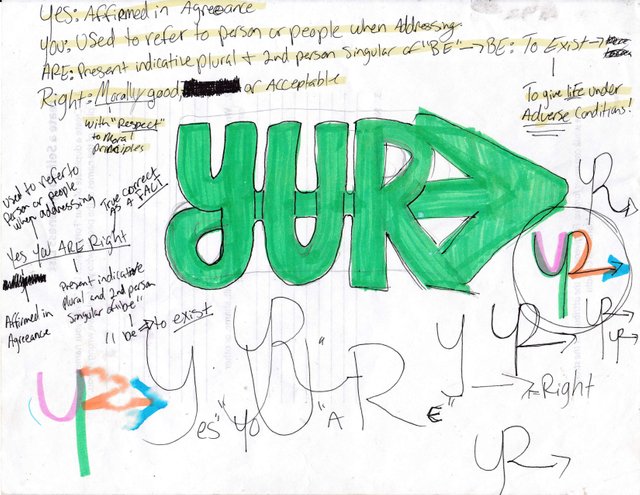 YES: Affirmed in Agreeance
YOU: Used to refer to person or people when Addressing.
ARE: Present indicative plural + 2nd person Singular of "BE" → BE: To Exist →
Right: Morally good, or Acceptable
with "Respect" to Moral Principles
To give life under Adverse Conditions!
YUR
Used to refer to person or people when addressing
True correct AS A FACT
Yes YOU ARE Right
Affirmed in Agreeance
Present indicative plural and 2nd person Singular of "be"
"be → to exist
YR
YR
YR
YR
YR
Yes" "YOU" "ARE" Y
→ = Right
YR
YR